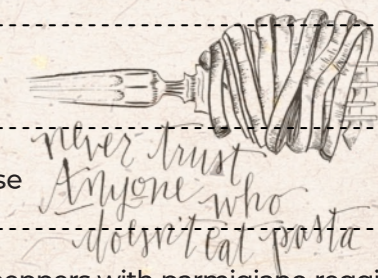 never trust
se
Anyone who
doesn't eat pasta
peppers with parmigiano reggi